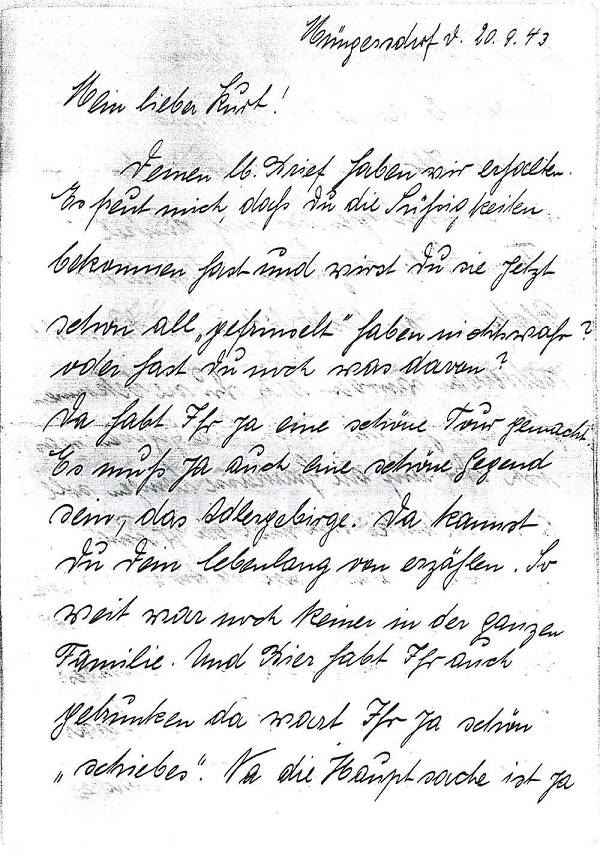 Müngersdorf d. 20.9.43
Mein lieber Kurt!
Deinen lb. Brief haben wir erhalten.
Es freut mich, daß Du die Süßigkeiten
bekommen hast und wirst Du sie jetzt
schon all „gefrimselt" haben nicht wahr?
oder hast Du noch was davon?
Da habt Ihr ja eine schöne Tour gemacht.
Es muß ja auch eine schöne Gegend
sein, das Adlergebirge. Da kannst
Du Dein lebenlang von erzählen. So
weit war noch keiner in der ganzen
Familie. Und Bier habt Ihr auch
getrunken da wart Ihr ja schön
„schiebes". Na die Hauptsache ist ja